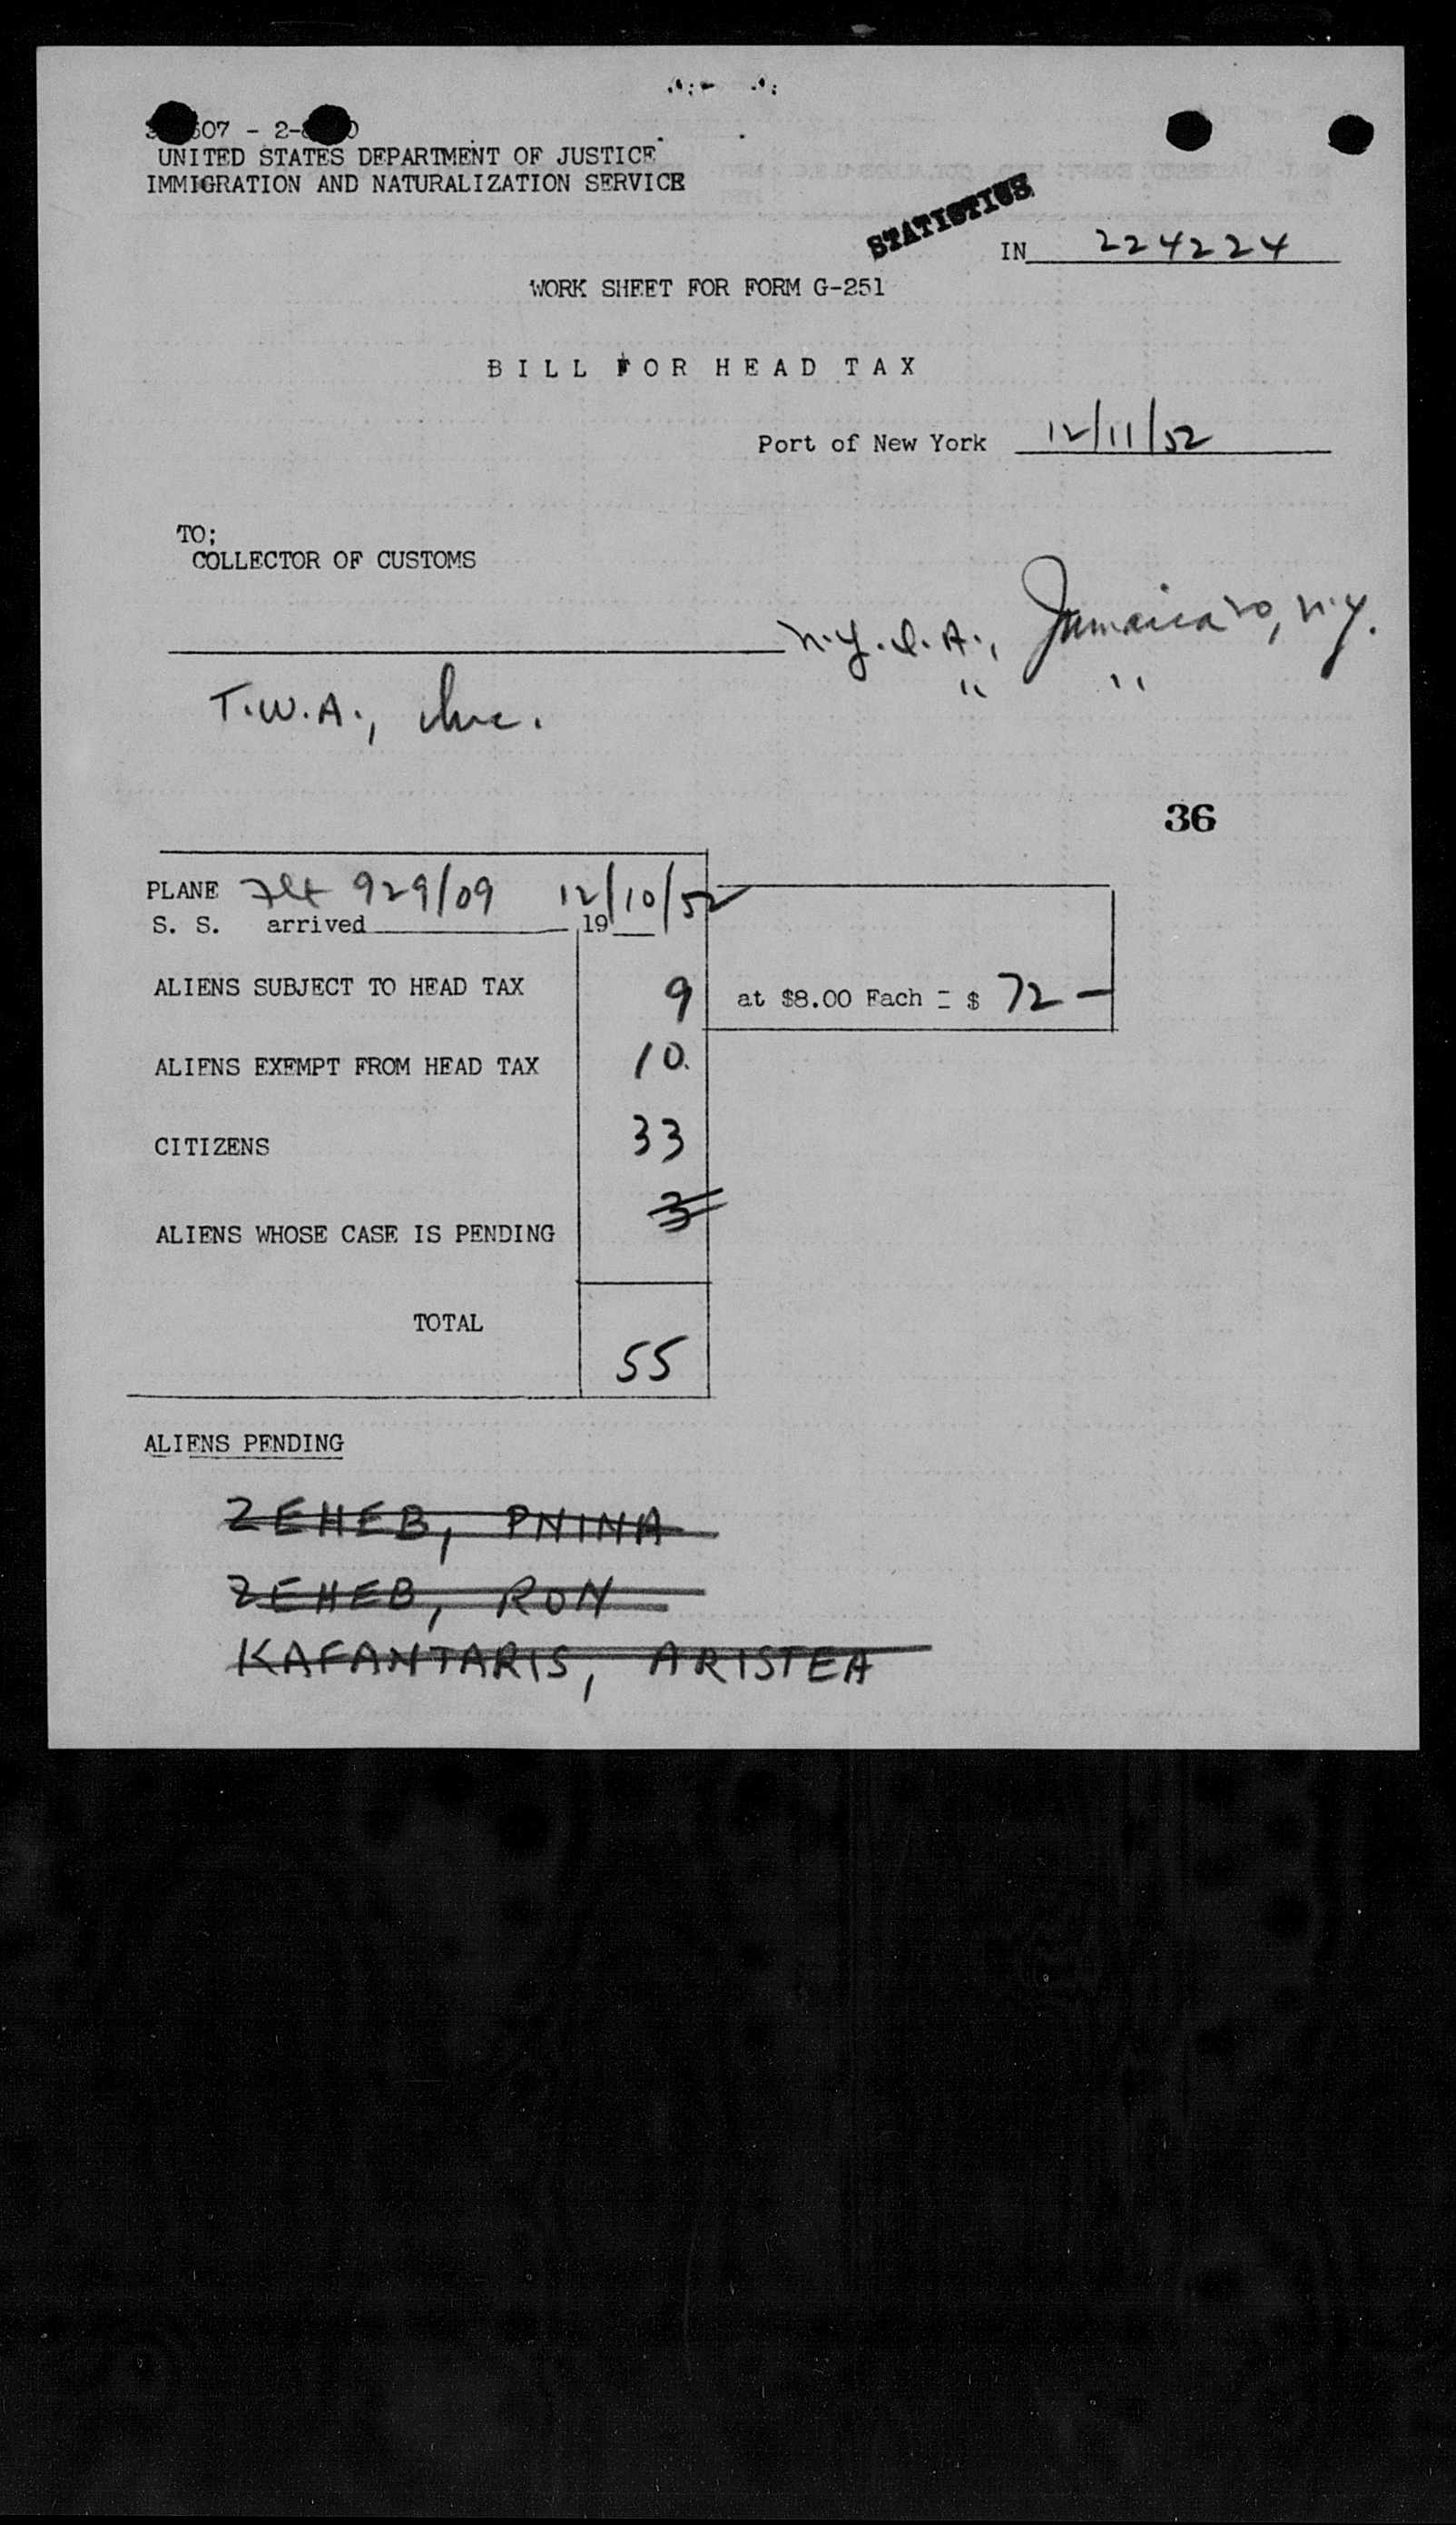 607 - 2-
UNITED STATES DEPARTMENT OF JUSTICE
IMMIGRATION AND NATURALIZATION SERVICE
STATISTICS
IN 224224
WORK SHEET FOR FORM G-251
BILL FOR HEAD TAX
Port of New York 12/11/52
TO;
COLLECTOR OF CUSTOMS
N.Y.I.A., Jamaica 20, N.Y.
T.W.A., Inc. " "
36
PLANE Flt 929/09 12/10/52
S. S. arrived 19
ALIENS SUBJECT TO HEAD TAX 9 at $8.00 Each = $ 72 -
ALIENS EXEMPT FROM HEAD TAX 10.
CITIZENS 33
ALIENS WHOSE CASE IS PENDING 3
TOTAL
55
ALIENS PENDING
ZEHEB, PNINA
ZEHEB, RON
KAFANTARIS, ARISTEA